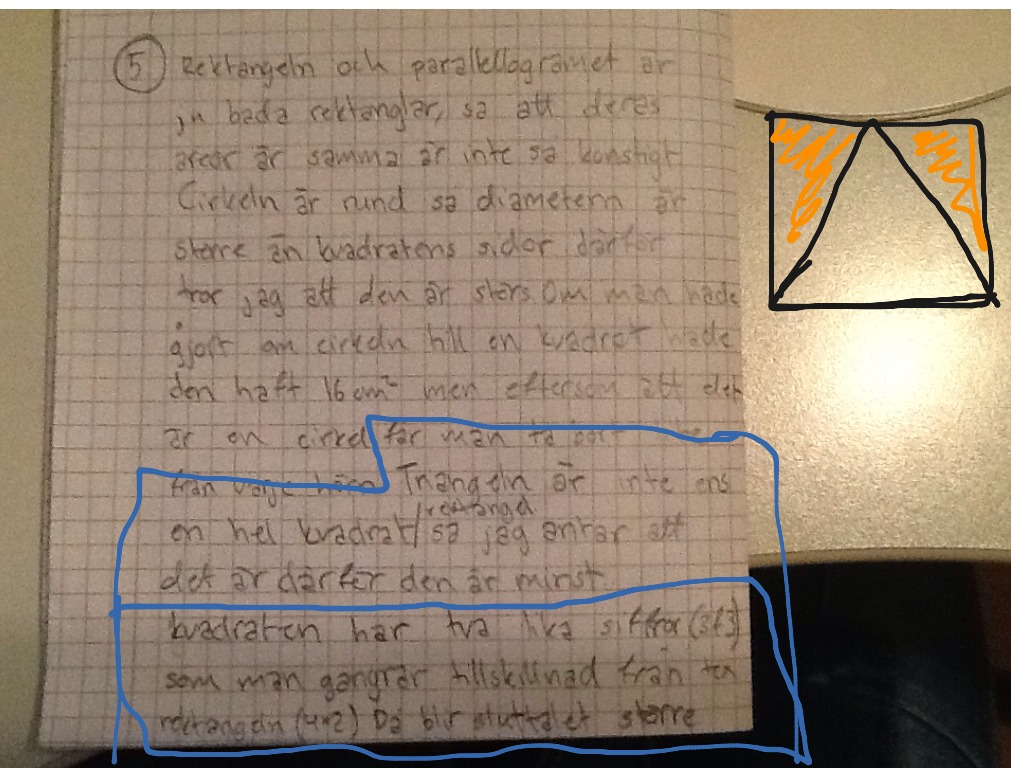 5 Rektangeln och parallellogramet är
ju båda rektanglar, så att deras
areor är samma är inte så konstigt
Cirkeln är rund så diametern är
större än kvadratens sidor därför
tror jag att den är störs. Om man hade
gjort om cirkeln till en kvadrat hade
den haft 16 cm² men eftersom att den
är en cirkel får man ta bort
från varje hörn. Triangeln är inte ens
en hel kvadrat/rektangel så jag antar att
det är därför den är minst.
kvadraten har två lika siffror (3+3)
som man gångrar tillskillnad från
rektangeln (4+2) Då blir sluttalet större